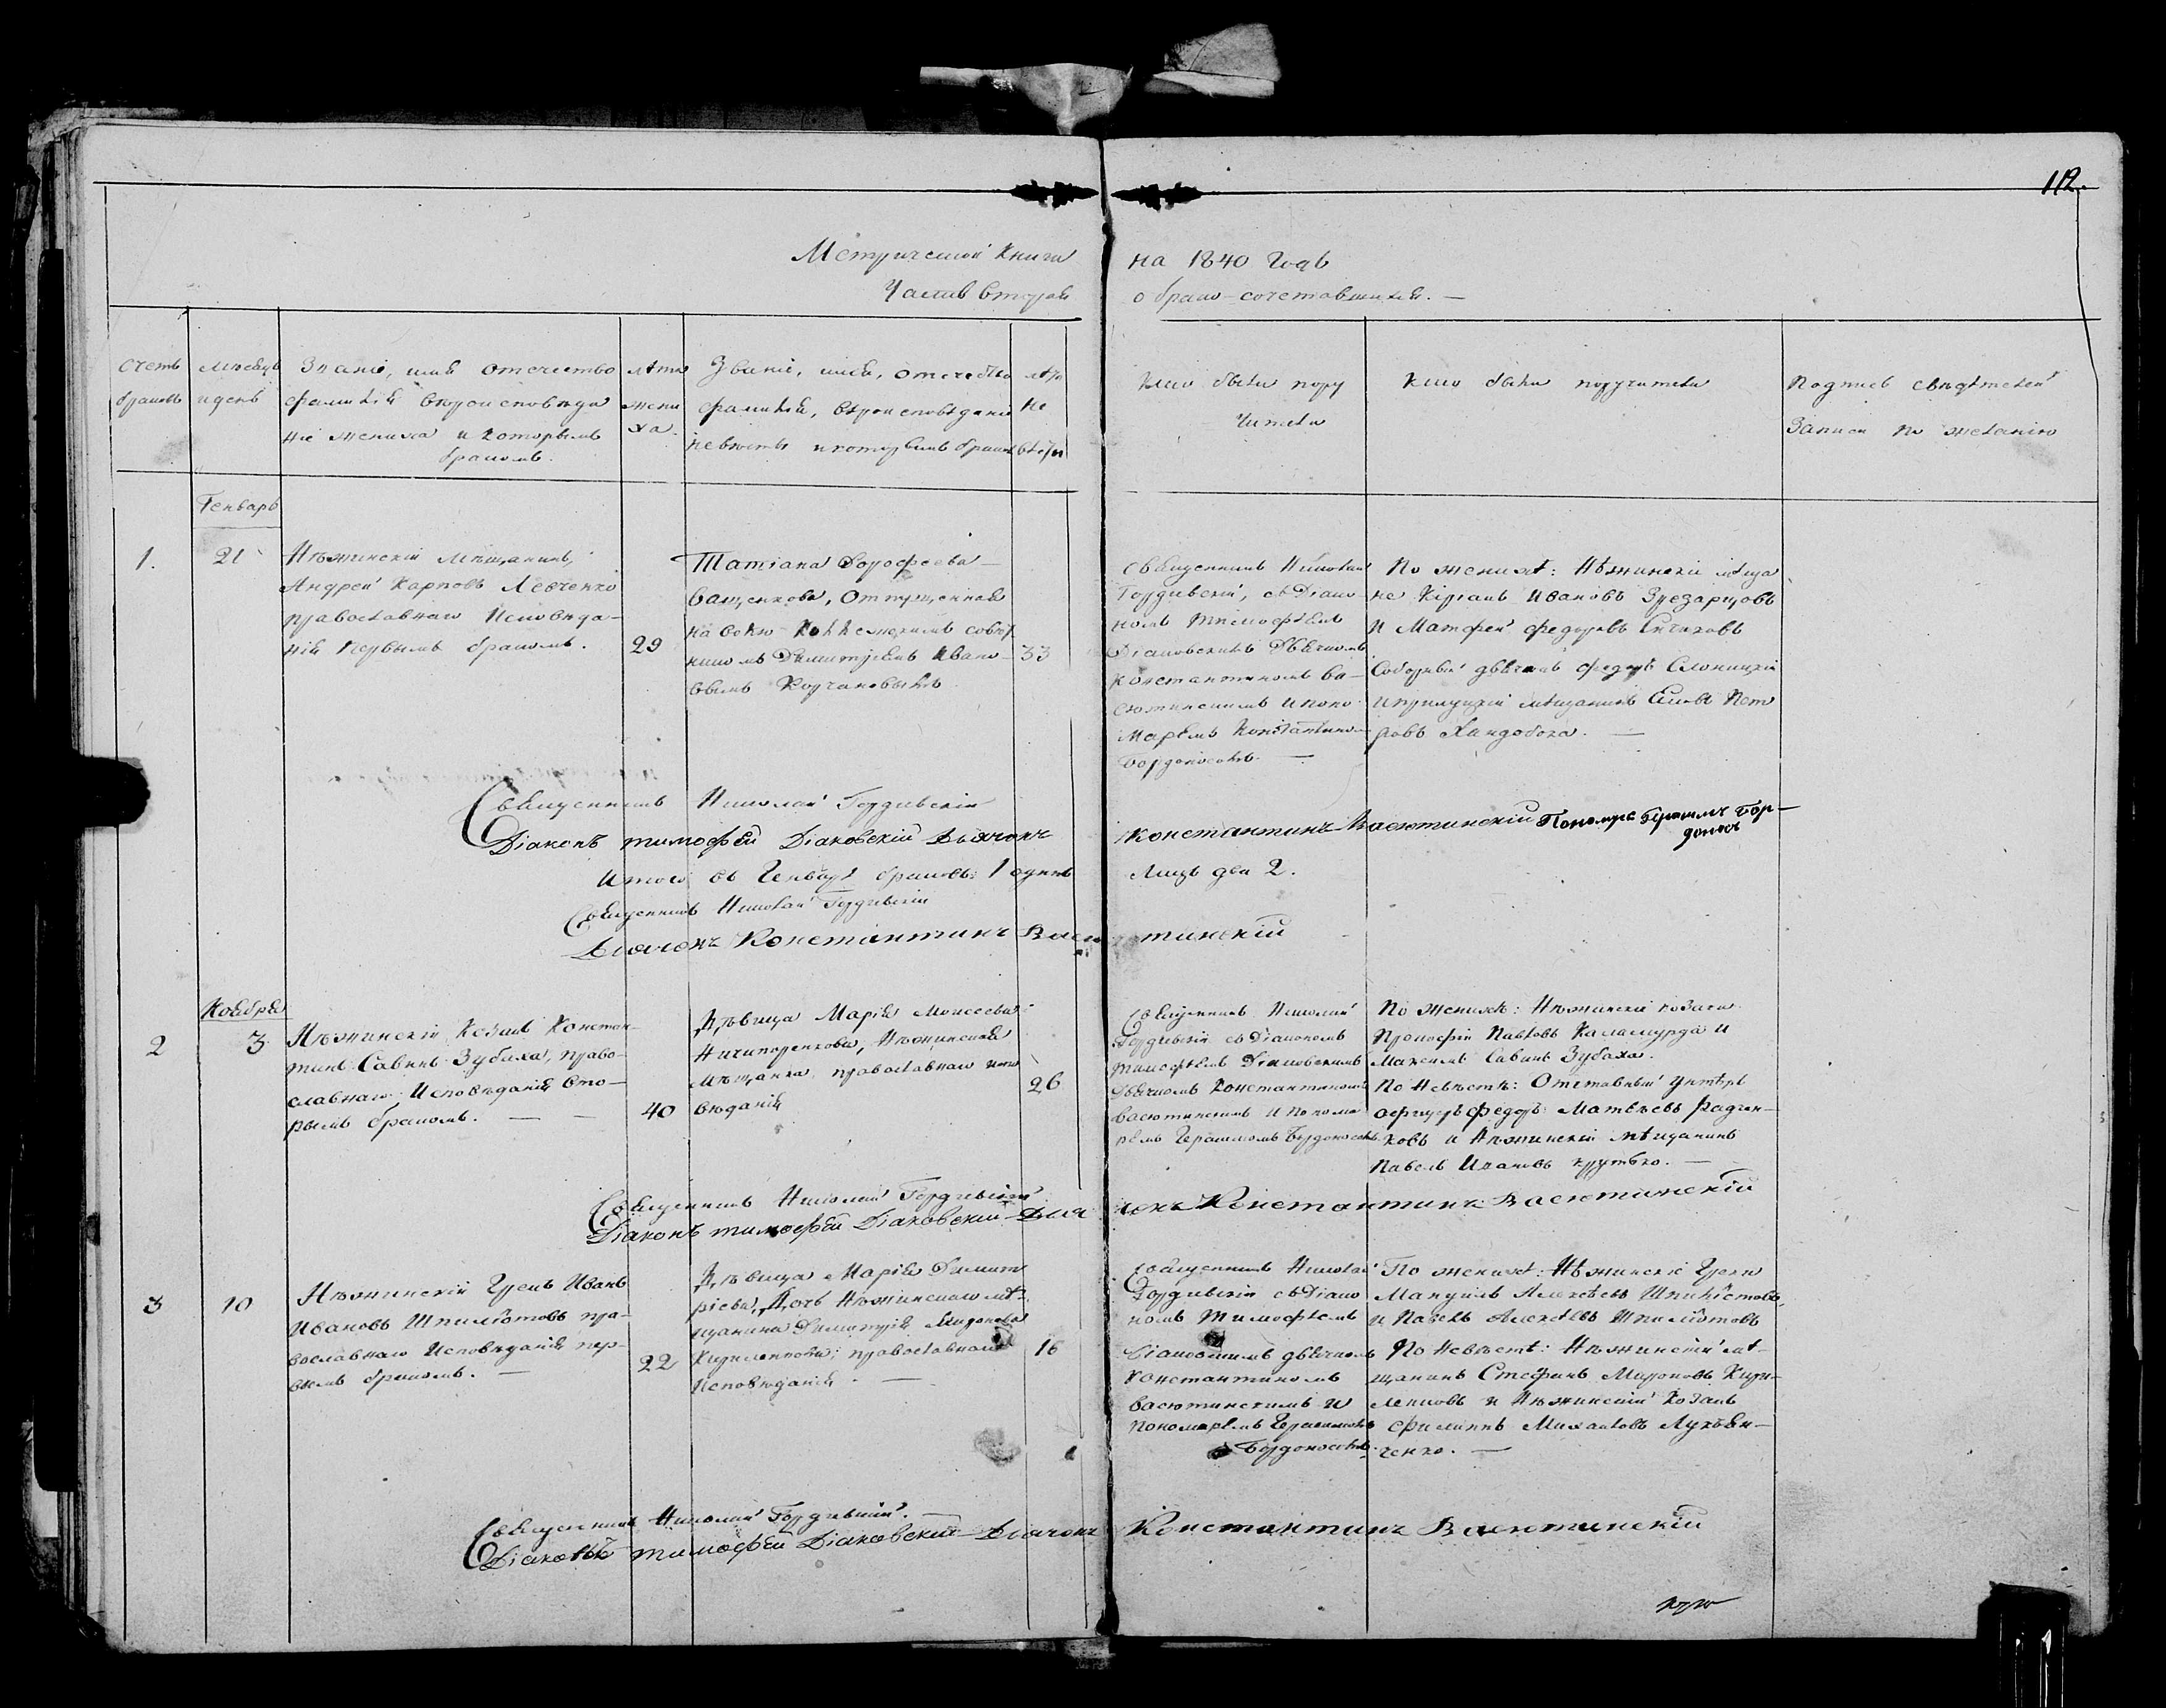 112.
Метрической книги на 1840 годъ
Часть вторая о брако-сочетавшихся. —
Счетъ браковъ
Мѣсяцъ и день
Званіе, имя отечество
фамилія вѣроисповѣда
ніе жениха и которымъ
бракомъ.
лѣта
жени
ха.
Званіе, имя, отечество
фамилія, вѣроисповѣданіе
невѣсты и которымъ бракомъ
лѣта
не
вѣсты
Кто были пору
чители
Подпись свидѣтелей
записи по желанію
Генварь
1.
21
Нѣжинскій мѣщанинъ,
Андрей Карповъ Левченко
православнаго исповѣда-
нія первымъ бракомъ.
29
Татіана Дорофеева
Ващенкова, отпущенная
на волю Коллежскимъ совѣт
никомъ Димитріемъ Ивано-
вымъ Корчановымъ
33
Священникъ Николай
Гордіевскій, съ Діако
номъ Тимофѣемъ
Діаковскимъ Дьячкомъ
Константиномъ Ва-
сютинскимъ и поно-
маремъ
Бордоносомъ. —
По женихѣ: Нѣжинскіе мѣща
не Ивановъ
и Матфей Федоровъ
Соборный дьячекъ Федоръ Слоницкій
и прилуцкій мѣщанинъ Пет
ровъ Хандобока. —
Священникъ Николай Гордіевскій
Діаконъ Тимофей Діаковскій Дьячокъ Константинъ Васютинскій Пономарь Герасимъ Бор-
доносъ
Итого въ Генварѣ браковъ: 1 одинъ Лицъ два 2.
Священникъ Николай Гордіевскій
Дьячокъ Константинъ Васютинскій
Ноября
2
3
Нѣжинскій Козакъ Констан-
тинъ Савинъ Зубаха, право-
славнаго исповѣданія вто-
рымъ бракомъ. —
40
Дѣвица Марія Моисеева
Ничипоренкова, Нѣжинская
Мѣщанка православнаго испо
вѣданія
26
Священникъ Николай
Гордіевскій съ Діакономъ
Тимофѣемъ Діаковскимъ
Дьячкомъ Константиномъ
Васютинскимъ и понома
ремъ Герасимомъ Бордоносомъ.
По женихѣ: Нѣжинскіе козаки
Прокофій Павловъ Каламурда и
Максимъ Савинъ Зубаха.
По невѣстѣ: Отставный унтеръ
офицеръ Федоръ Матвѣевъ Радчен-
ковъ и Нѣжинскій мѣщанинъ
Павелъ Ивановъ
Священникъ Николай Гордіевскій
Діаконъ Тимофей Діаковскій Дьячокъ Константинъ Васютинскій
3
10
Нѣжинскій Грекъ Иванъ
Ивановъ Шпиліотовъ пра-
вославнаго исповѣданія пер-
вымъ бракомъ. —
22
Дѣвица Марія Димит
ріева, Дочь Нѣжинскаго мѣ-
щанина Димитрія Миронова
Кириленкова; православнаго
исповѣданія. —
16
Священникъ Николай
Гордіевскій съ Діако
номъ Тимофѣемъ
Діаковскимъ дьячкомъ
Константиномъ
Васютинскимъ и
пономаремъ Герасимомъ
Бордоносомъ.
По женихѣ: Нѣжинскіе Греки
Мануилъ Алексѣевъ Шпиліотовъ,
и Павелъ Алексѣевъ Шпиліотовъ
По невѣстѣ: Нѣжинскій мѣ-
щанинъ Стефанъ Мироновъ Кири-
ленковъ и Нѣжинскій Козакъ
Филиппъ Михайловъ
ченко. —
Священникъ Николай Гордіевскій. —
Діаконъ Тимофей Діаковскій Дьячокъ Константинъ Васютинскій